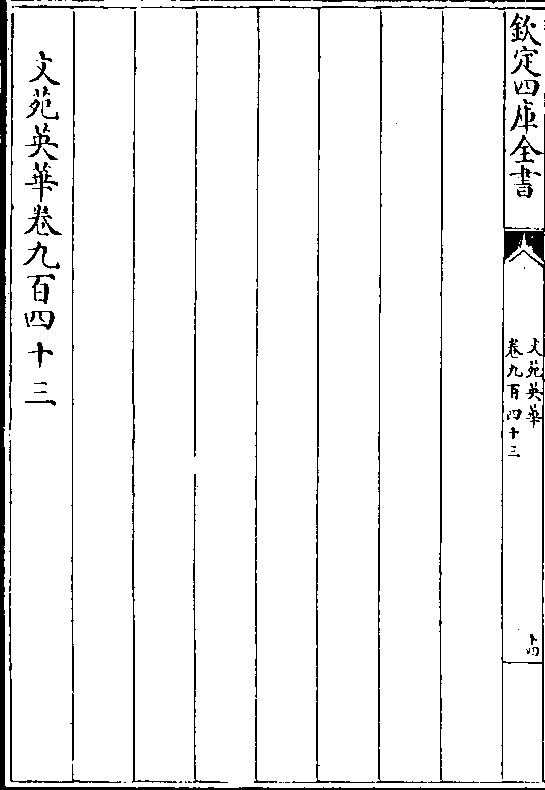 欽定四庫全書
文苑英華
卷九百四十三
十四
文苑英華卷九百四十三